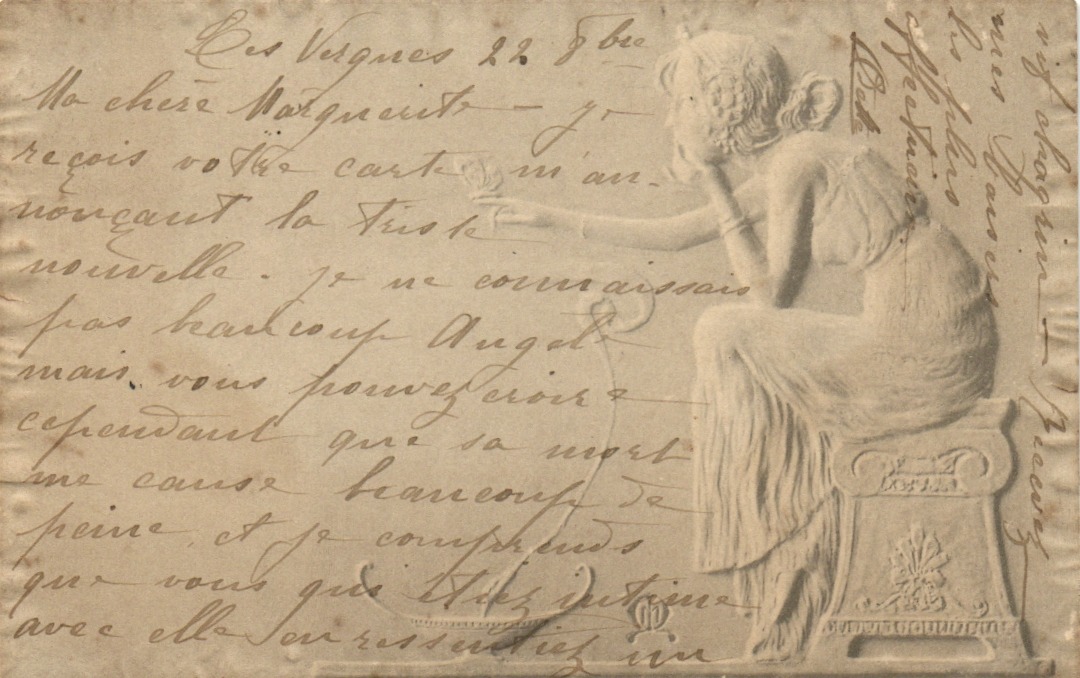 Les Vergnes 22 8bre
Ma chère Marguerite — je
reçois votre carte m'an-
nonçant la triste
nouvelle. je ne connaissais
pas beaucoup Angèle
mais, vous pouvez croire
cependant que sa mort
me cause beaucoup de
peine, et je comprends
que vous qui étiez intime
avec elle en ressentiez un
vif chagrin — Recevez
mes baisers
les plus
affectueux